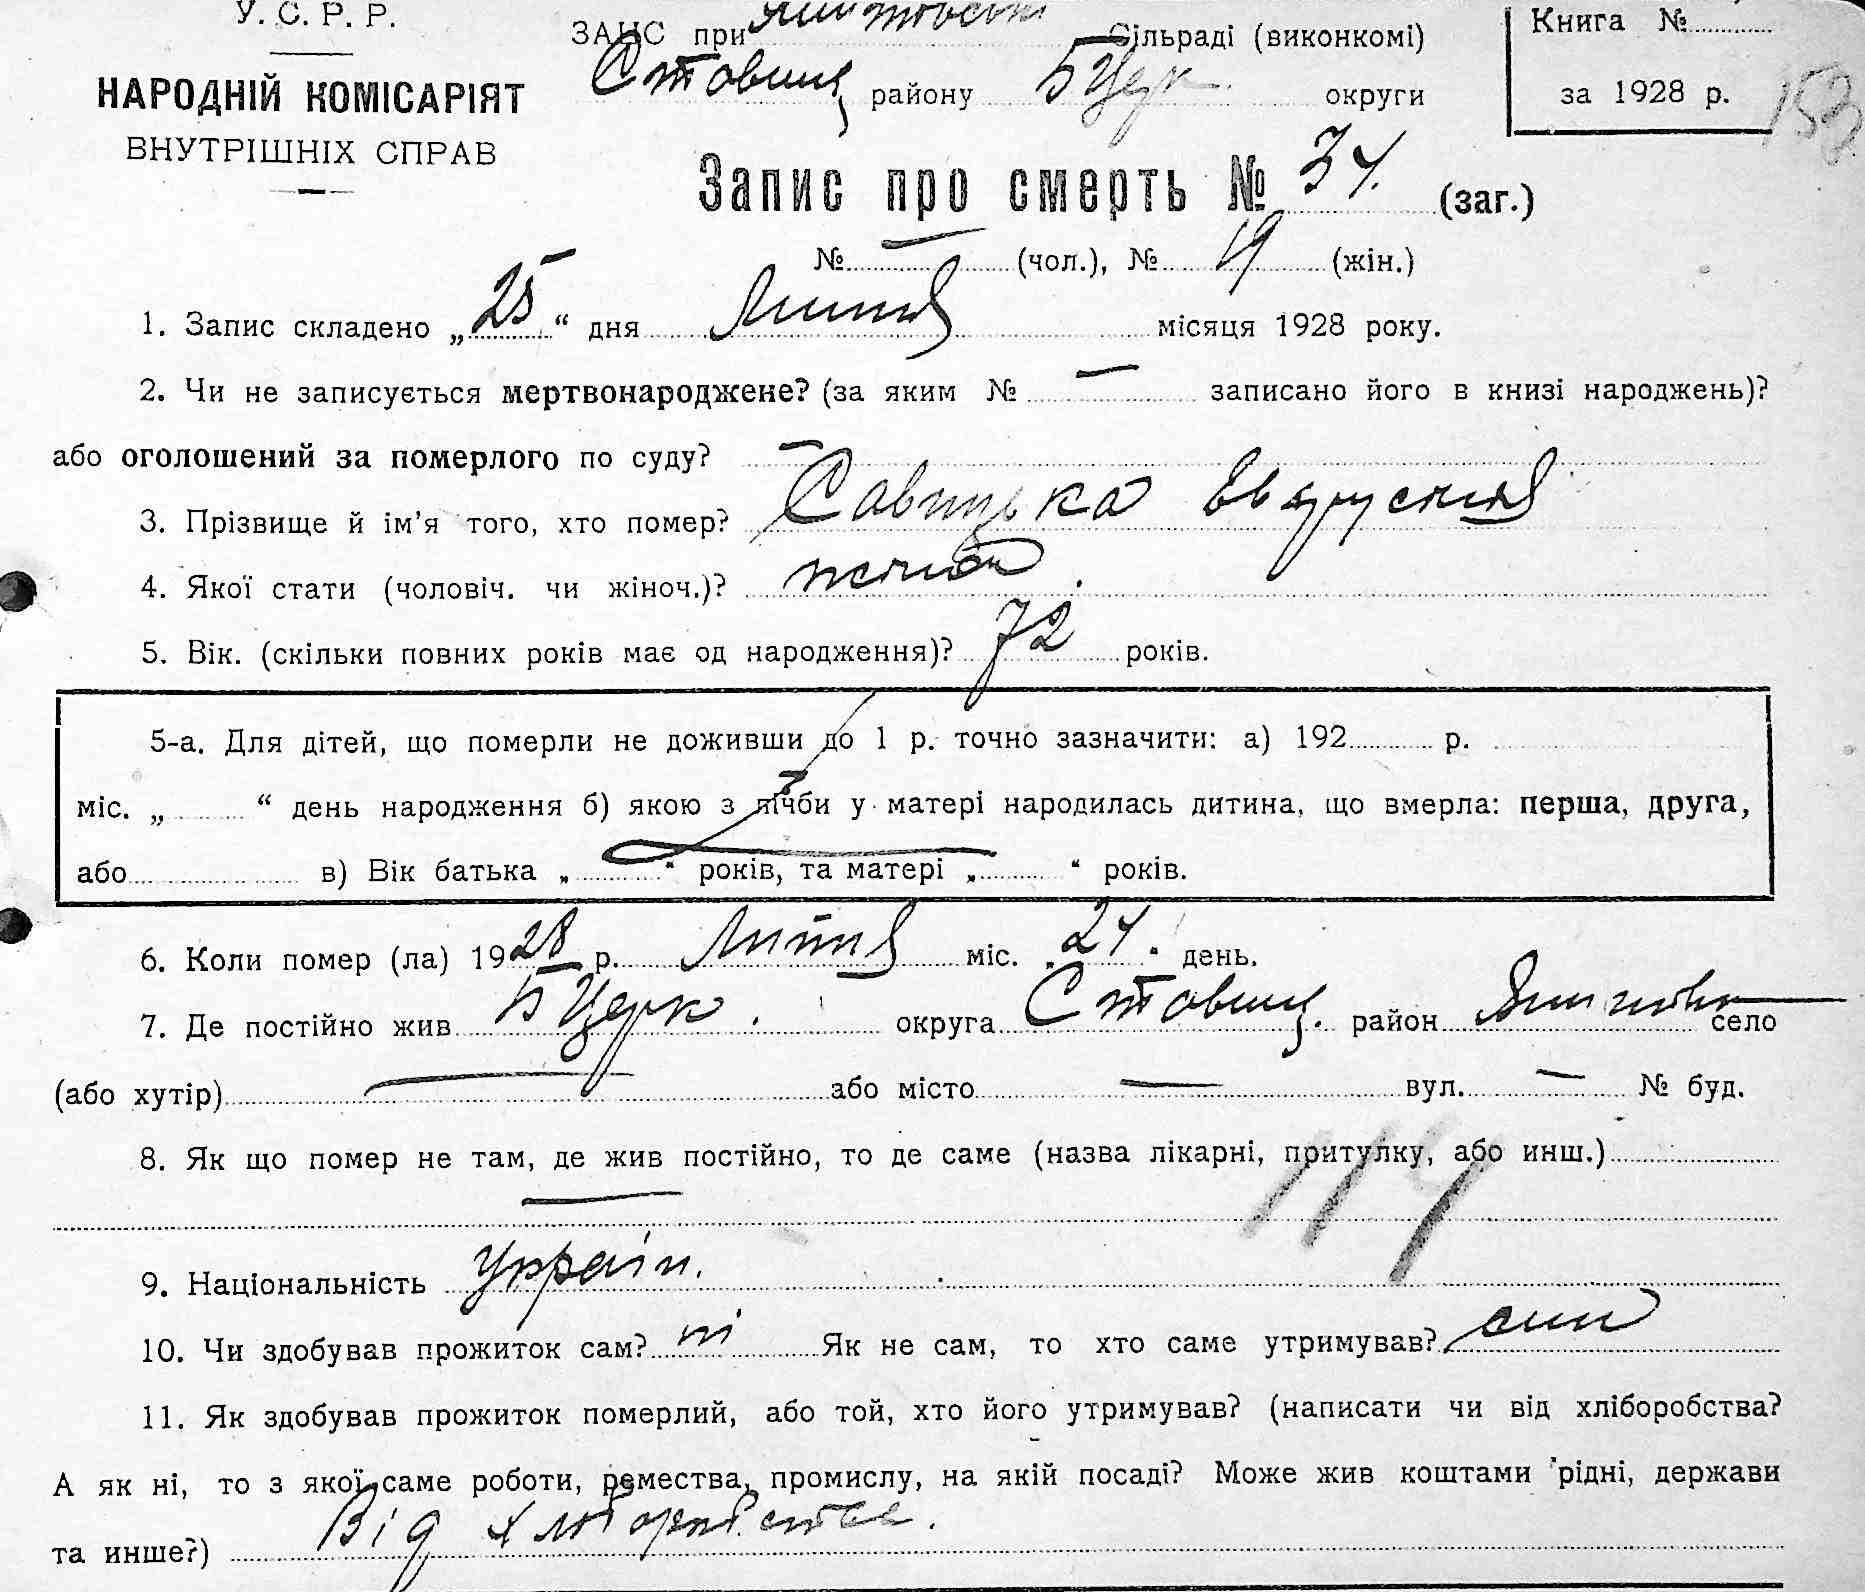 У. С. Р. Р.
НАРОДНІЙ КОМІСАРІЯТ
ВНУТРІШНІХ СПРАВ
ЗАЦС при Сільраді (виконкомі)
Ставищ району БЦерк округи
Книга №
за 1928 р.
153
Запис про смерть № 34. (заг.)
№ — (чол.), № 19 (жін.)
1. Запис складено „25“ дня Липня місяця 1928 року.
2. Чи не записується мертвонароджене? (за яким № — записано його в книзі народжень)?
або оголошений за померлого по суду? —
3. Прізвище й ім'я того, хто помер? Савицька
4. Якої стати (чоловіч. чи жіноч.)? жіноч
5. Вік. (скільки повних років має од народження)? 72 років.
5-а. Для дітей, що померли не доживши до 1 р. точно зазначити: а) 192 р.
міс. „ “ день народження б) якою з лічби у матері народилась дитина, що вмерла: перша, друга,
або в) Вік батька „ “ років, та матері „ “ років.
6. Коли помер (ла) 1928 р. Липня міс. „24“ день.
7. Де постійно жив БЦерк. округа Ставищ. район село
(або хутір) — або місто — вул. — № буд.
8. Як що помер не там, де жив постійно, то де саме (назва лікарні, притулку, або инш.)
—
114
9. Національність Україн.
10. Чи здобував прожиток сам? ні Як не сам, то хто саме утримував? син
11. Як здобував прожиток померлий, або той, хто його утримував? (написати чи від хліборобства?
А як ні, то з якої саме роботи, ремества, промислу, на якій посаді? Може жив коштами рідні, держави
та инше?) Від хліборобства.